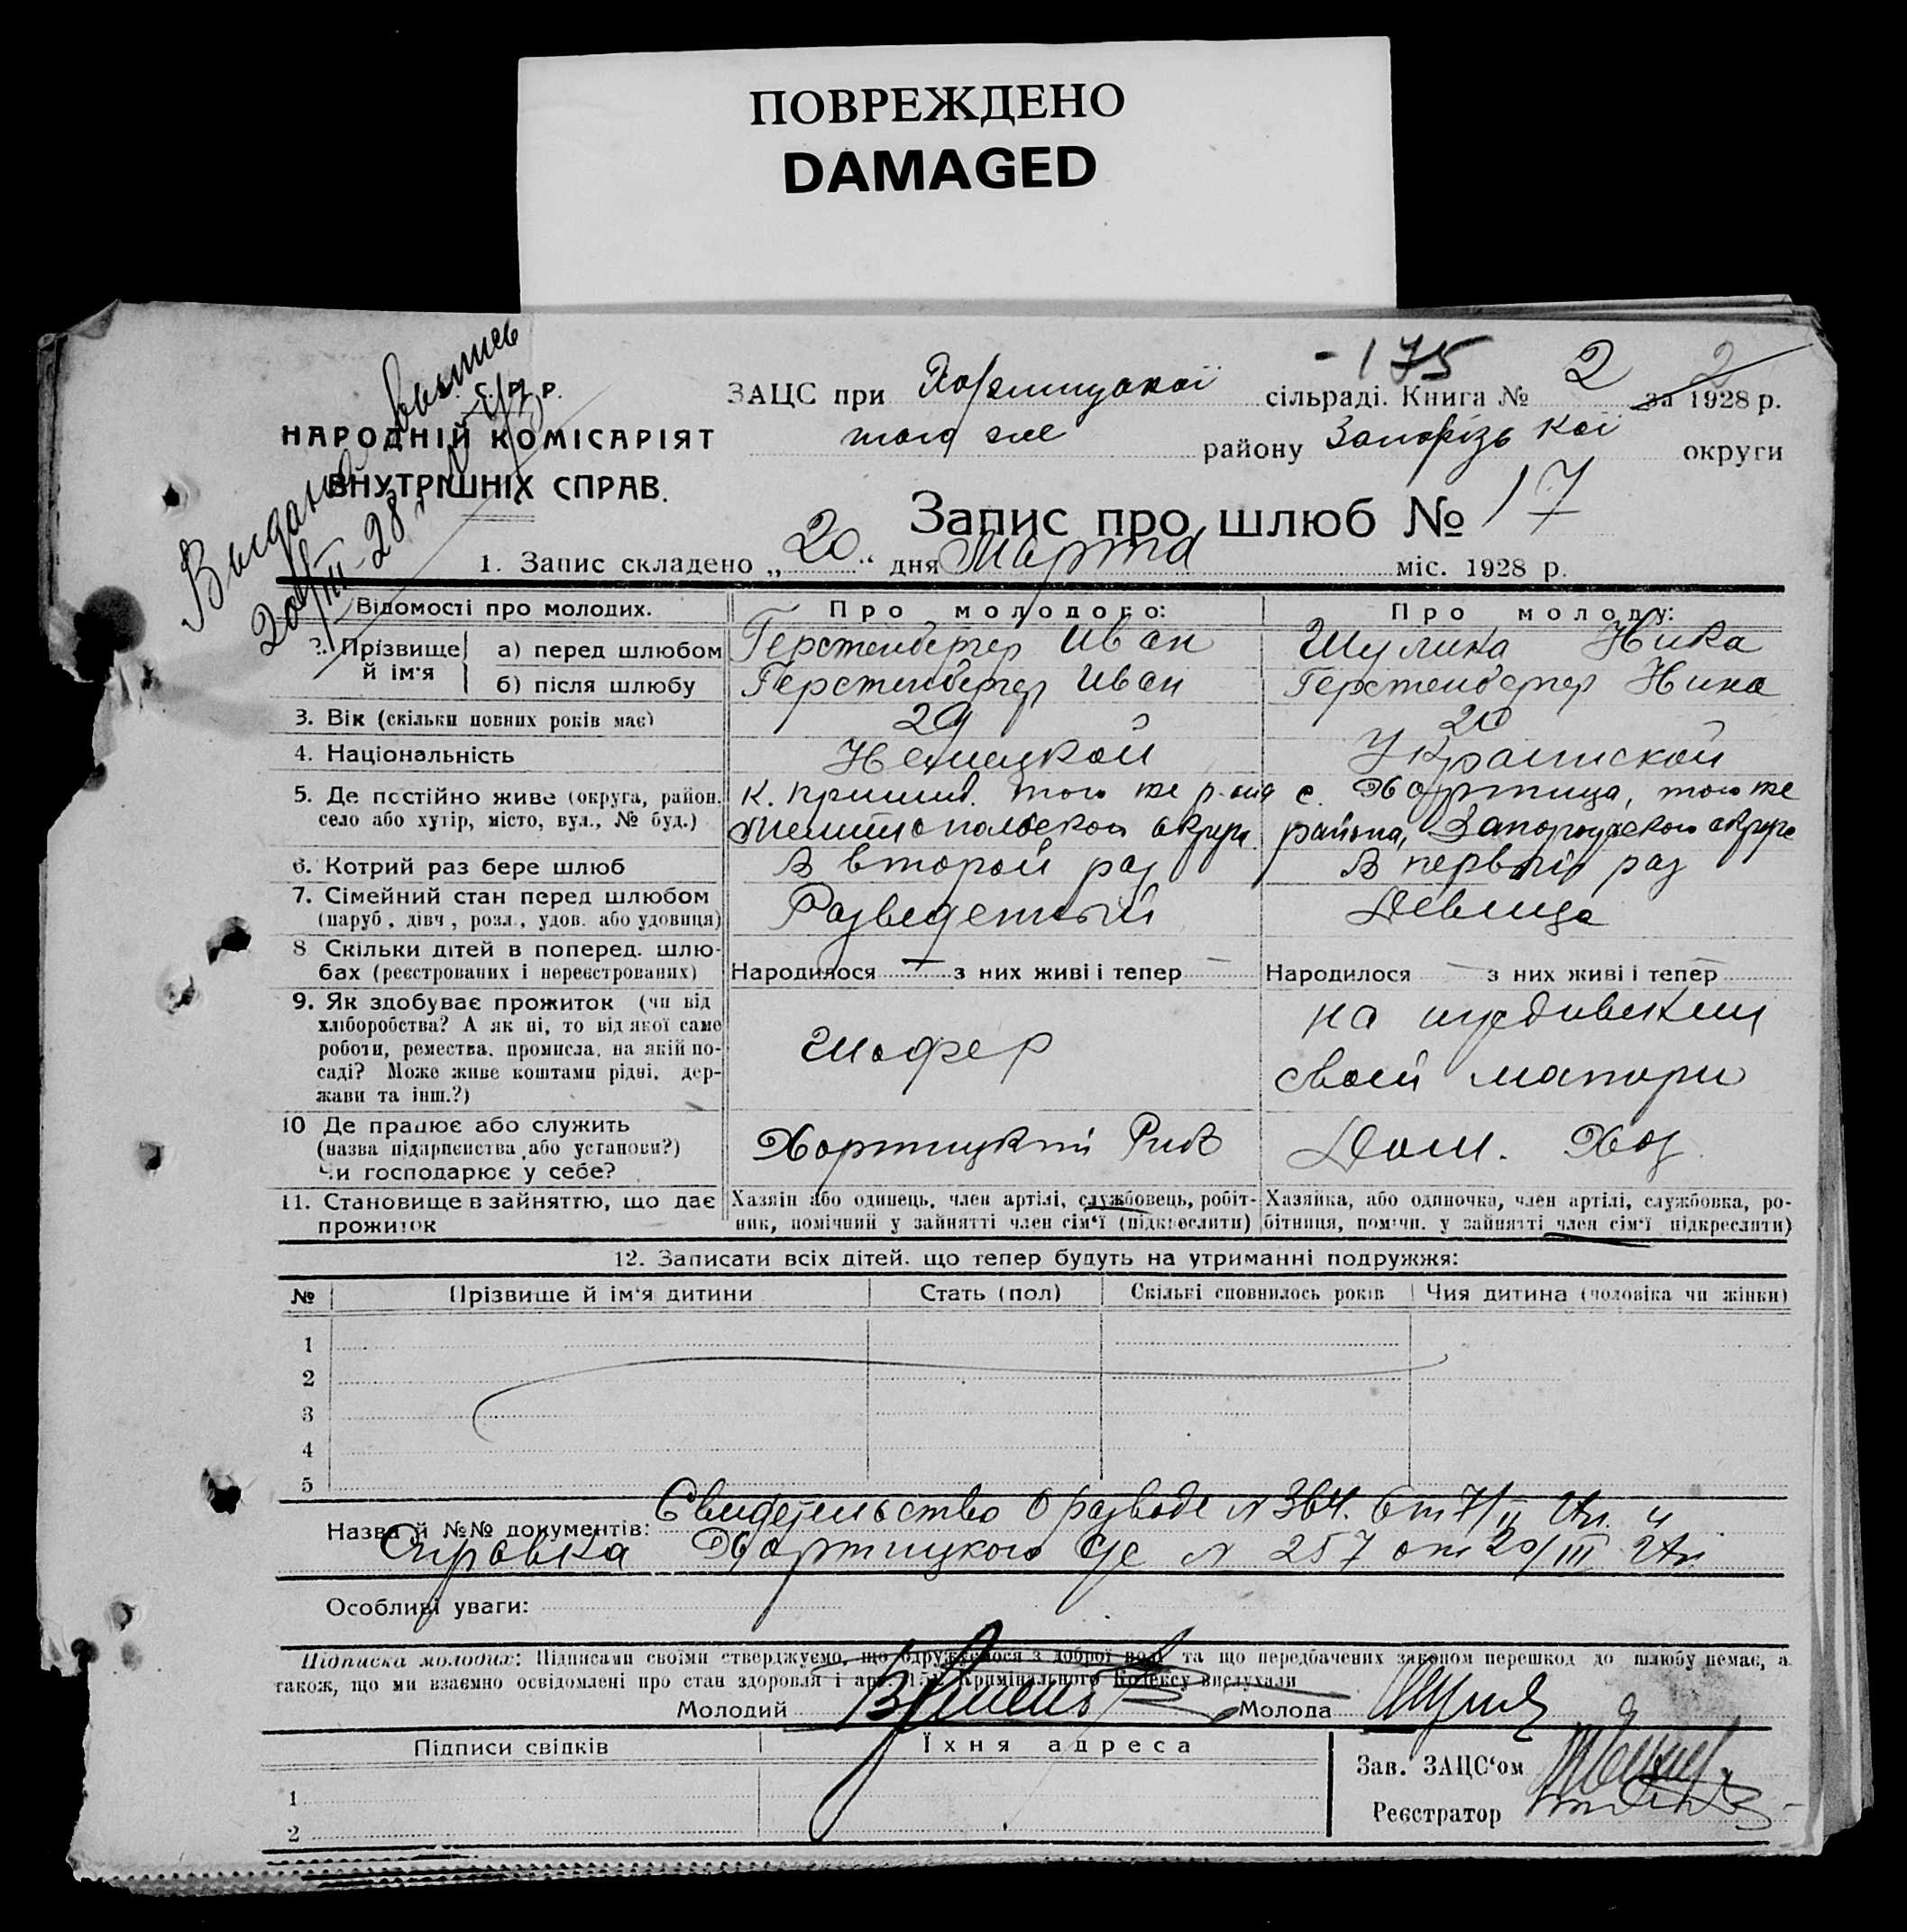 ПОВРЕЖДЕНО
DAMAGED
- 175
Выдана выпись
20/III-28 г.
С. Р. Р.
НАРОДНІЙ КОМІСАРІЯТ
ВНУТРІШНІХ СПРАВ.
ЗАЦС при Хортицької сільраді. Книга № 2 за 1928 р. 2
того же району Запорізької округи
Запис про шлюб № 17
1. Запис складено „ 20 “ дня Марта міс. 1928 р.
Відомості про молодих. Про молодого: Про молоду:
2. Прізвище й ім'я а) перед шлюбом Герстенбергер Иван Шулика Ника
б) після шлюбу Герстенбергер Иван Герстенбергер Нина
3. Вік (скільки повних років має) 29 20
4. Національність Немецкой Украинской
5. Де постійно живе (округа, район, к. Пришиб. того же р-на с. Хортица, того же
село або хутір, місто, вул., № буд.) Мелитопольской округи. района, Запорожской округи
6. Котрий раз бере шлюб В второй раз В первый раз
7. Сімейний стан перед шлюбом Разведенный Девица
(паруб., дівч., розл., удов. або удовиця)
8 Скільки дітей в поперед. шлю-
бах (реєстрованих і нереєстрованих) Народилося — з них живі і тепер — Народилося — з них живі і тепер
9. Як здобуває прожиток (чи від на иждивении
хліборобства? А як ні, то від якої саме
роботи, ремества, промисла, на якій по- Шофер
саді? Може живе коштами рідні, дер- своей матери
жави та інш.?)
10 Де працює або служить
(назва підприємства або установи?) Хортицкий Рик Дом. Хоз.
Чи господарює у себе?
11. Становище в зайняттю, що дає Хазяїн або одинець, член артілі, службовець, робіт- Хазяйка, або одиночка, член артілі, службовка, ро-
прожиток ник, помічний у зайнятті член сім'ї (підкреслити) бітниця, помічн. у зайнятті член сім'ї підкреслити)
12. Записати всіх дітей, що тепер будуть на утриманні подружжя:
№ Прізвище й ім'я дитини Стать (пол) Скількі сповнилось років Чия дитина (чоловіка чи жінки)
1
2
3
4
5
Назва й №№ документів: Свидетельство о разводе N 364. от 7/II и
Справка Хортицкого с/с N 257 от 20/III
Особливі уваги:
Підписка молодих: Підписами своїми стверджуємо, що одружуємося з доброї волі та що передбачених законом перешкод до шлюбу немає, а
також, що ми взаємно освідомлені про стан здоровля і арт. 15 Кримінального Кодексу вислухали
Молодий Молода
Підписи свідків Їхня адреса
Зав. ЗАЦС'ом
1
Реєстратор
2